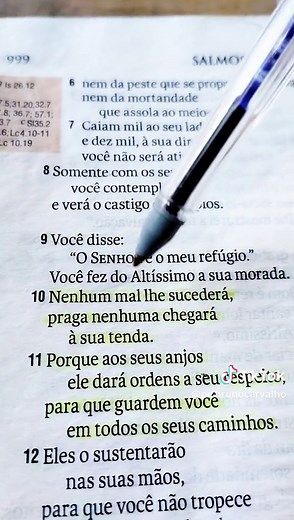 999
SALMOS
s 26.12
7.5;31.20;32.7
.8; 36.7; 57.1;
3.7 c Sl35.2
.6; Lc4.10-11
c 10.19
6 nem da peste que se
nem da mortandade
que assola ao meio
7 Caiam mil ao seu
e dez mil, à sua
você não será
8 Somente com os
você
e verá o castigo
9 Você disse:
“O SENHOR é o meu refúgio.”
Você fez do Altíssimo a sua morada.
10 Nenhum mal lhe sucederá,
praga nenhuma chegará
à sua tenda.
11 Porque aos seus anjos
ele dará ordens a seu respeito,
para que guardem você
em todos os seus caminhos.
12 Eles o sustentarão
nas suas mãos,
para que você não tropece
TikTok